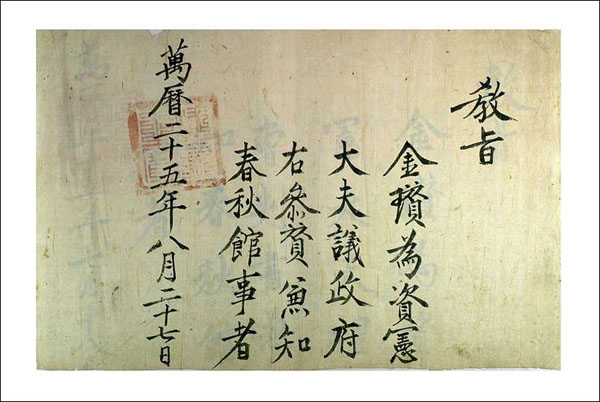 敎旨
金瓚為資憲
大夫議政府
右參贊兼知
春秋館事者
萬曆二十五年八月二十七日